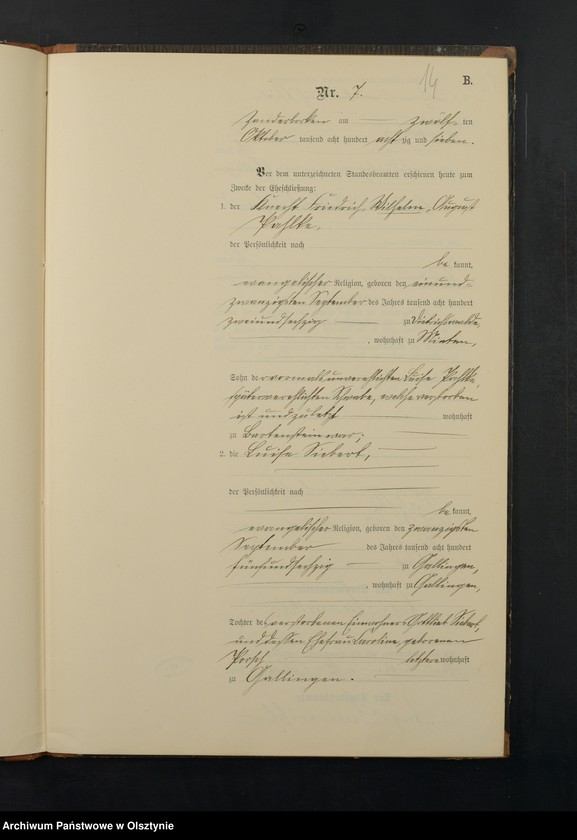 14
B.
Nr. 7.
am zwölf ten
Oktober tausend acht hundert acht zig und sieben.
Vor dem unterzeichneten Standesbeamten erschienen heute zum
Zwecke der Eheschließung:
1. der Knecht Friedrich Wilhelm August
Pahlke,
der Persönlichkeit nach
be kannt,
evangelischer Religion, geboren den einund-
zwanzigsten September des Jahres tausend acht hundert
zweiundsechzig zu Dietrichswalde,
, wohnhaft zu Minten,
Sohn der vormals unverehelichten Luise Pahlke,
späterverehelichten welche verstorben
ist und zuletzt wohnhaft
zu Bartenstein war;
2. die Luise Siebert,
der Persönlichkeit nach
be kannt,
evangelischer Religion, geboren den zwanzigsten
September des Jahres tausend acht hundert
fünfundsechzig zu Gallingen,
, wohnhaft zu Gallingen,
Tochter des verstorbenen Einwohners Gottlieb Siebert
und dessen Ehefrau Caroline geborenen
letztere wohnhaft
zu Gallingen.
Archiwum Państwowe w Olsztynie